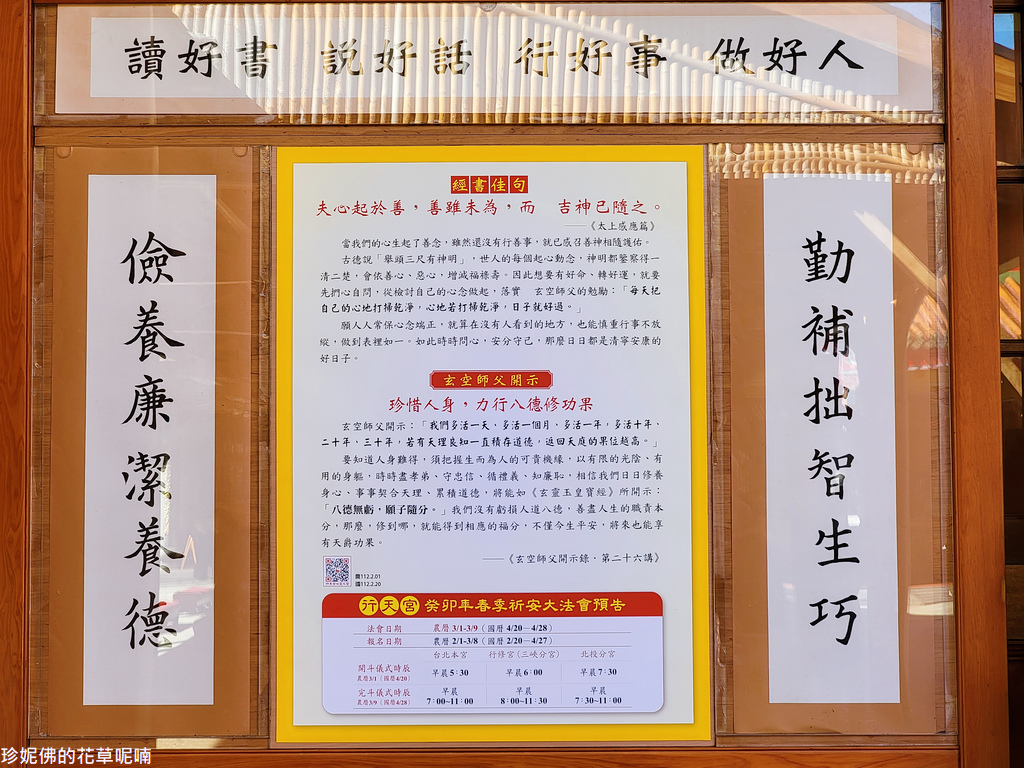 讀好書 說好話 行好事 做好人
勤補拙智生巧
儉養廉潔養德
經書佳句
夫心起於善，善雖未為，而 吉神已隨之。
——《太上感應篇》
當我們的心生起了善念，雖然還沒有行善事，就已感召善神相隨護佑。
古德說「舉頭三尺有神明」，世人的每個起心動念，神明都鑒察得一
清二楚，會依善心、惡心，增減福祿壽。因此想要有好命、轉好運，就要
先捫心自問，從檢討自己的心念做起，落實 玄空師父的勉勵：「每天把
自己的心地打掃乾淨，心地若打掃乾淨，日子就好過。」
願人人常保心念端正，就算在沒有人看到的地方，也能慎重行事不放
縱，做到表裡如一。如此時時問心，安分守己，那麼日日都是清寧安康的
好日子。
玄空師父開示
珍惜人身，力行八德修功果
玄空師父開示：「我們多活一天、多活一個月、多活一年，多活十年、
二十年、三十年，若有天理良知一直積存道德，返回天庭的果位越高。」
要知道人身難得，須把握生而為人的可貴機緣，以有限的光陰、有
用的身軀，時時盡孝弟、守忠信、循禮義、知廉恥，相信我們日日修養
身心、事事契合天理、累積道德，將能如《玄靈玉皇寶經》所開示：
「八德無虧，願子隨分。」我們沒有虧損人道八德，善盡人生的職責本
分，那麼，修到哪，就能得到相應的福分，不僅今生平安，將來也能享
有天爵功果。
——《玄空師父開示錄．第二十六講》
農112.2.01
國112.2.20
行天宮 癸卯年春季祈安大法會預告
法會日期 農曆 3/1-3/9（國曆 4/20－4/28）
報名日期 農曆 2/1-3/8（國曆 2/20－4/27）
台北本宮 行修宮（三峽分宮） 北投分宮
開斗儀式時辰 農曆3/1（國曆4/20） 早晨 5：30 早晨 6：00 早晨 7：30
完斗儀式時辰 農曆3/9（國曆4/28） 早晨 7：00~11：00 早晨 8：00~11：30 早晨 7：30~11：00
珍妮佛的花草呢喃